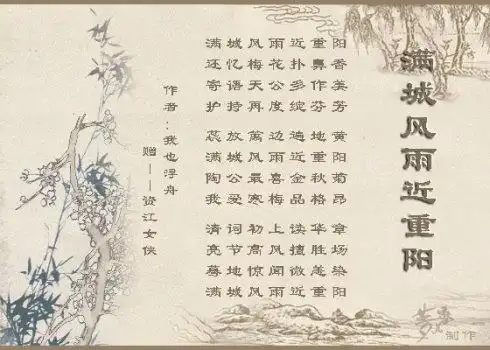 满城风雨近重阳
满城风雨近重阳
还忆梅花扑鼻香
寄语天公多作美
护持再度绽芬芳
蕊放篱边遍地黄
满城风雨近重阳
陶公最喜金秋菊
我爱寒梅品格昂
清词初上读华章
亮节高风擅胜场
蓦地惊闻微恙染
满城风雨近重阳
作者：我也浮舟
赠——资江女侠
制作